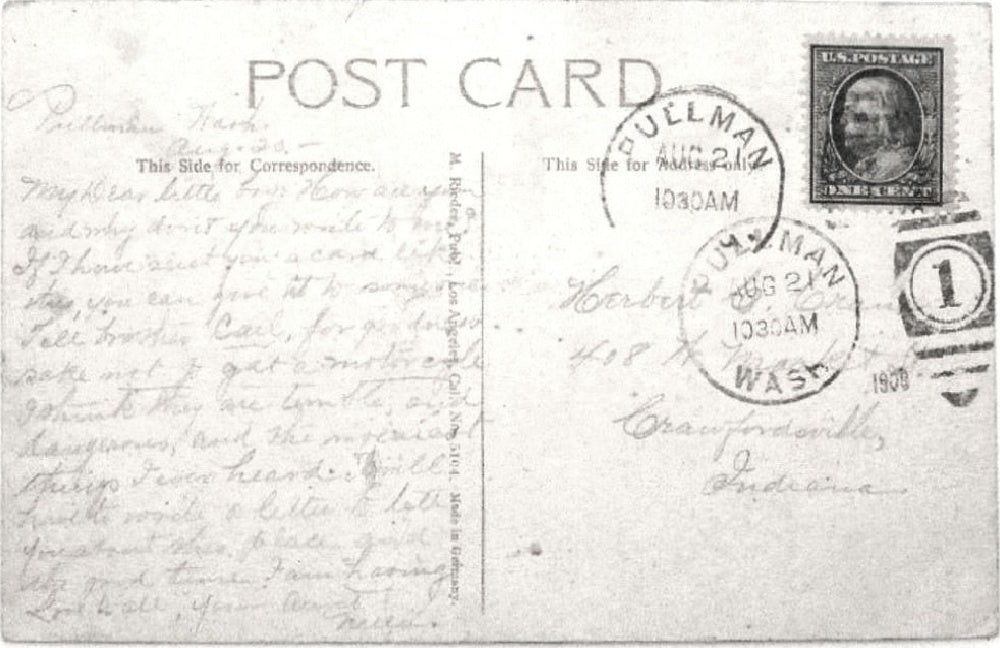 POST CARD
Pullman Wash.
Aug. 20. –
This Side for Correspondence.
My Dear little boy: How are you
and why don't you write to me.
If I have sent you a card like
this, you can give it to someone
Tell brother Carl, for goodness
sake not to get a motorcycle
I think they are terrible, and
dangerous, and the noisiest
things I ever heard. I will
have to write a letter to tell
you about this place and
the good time I am having
Love to all, your Aunt
M. Rieder, Publ., Los Angeles, Cal. No. 5104. Made in Germany.
This Side for Address only.
U.S. POSTAGE
ONE CENT
PULLMAN
AUG 21
1030AM
PULLMAN
AUG 21
1030AM
WASH
1909
1
Herbert
408 W. Market
Crawfordsville,
Indiana.